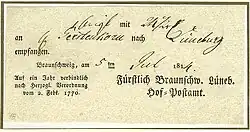 mit
an nach Lüneburg
empfangen.
Braunschweig, am 5 ten Jul 18 4.
Auf ein Jahr verbindlich
nach Herzogl. Verordnung
vom 2. Febr. 1770.
Fürstlich Braunschw. Lüneb.
Hof-Postamt.